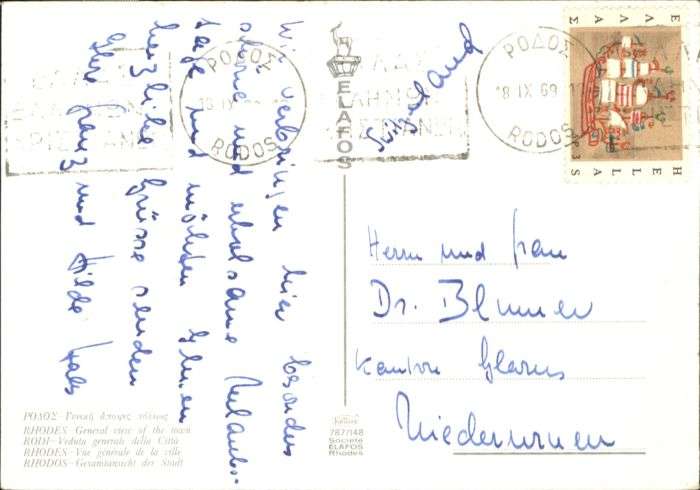 Wir verbringen hier besonders
schöne und erholsame Urlaubs-
tage und möchten Ihnen
herzliche Grüsse senden
Ihre Franz und Hilde
ELAFOS
Switzerland
ΡΟΔΟΣ
18 IX 69
RODOS
ΡΟΔΟΣ
18 IX
RODOS
ΕΛΛΑΣ
HELLAS
Herrn und Frau
Dr. Blumer
Kanton Glarus
Niederurnen
ΡΟΔΟΣ - Γενική άποψις πόλεως
RHODES - General view of the town
RODI - Veduta generale della Città
RHODES - Vue générale de la ville
RHODOS - Gesamtansicht der Stadt
787/148
Société
ELAFOS
Rhodes